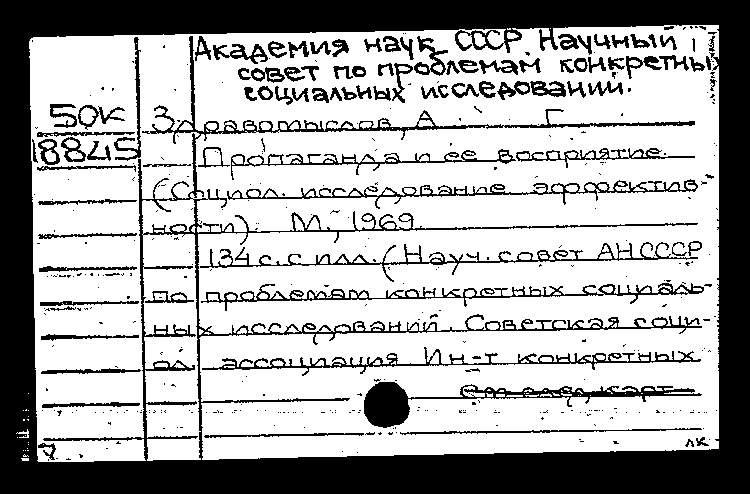 Академия наук СССР. Научный
совет по проблемам конкретных
социальных исследований.
50к Здравомыслов, А Г
18845 Пропаганда и ее восприятие.
(Социол. исследование эффектив-
ности). М., 1969.
134 с. с илл. (Науч. совет АН СССР
по проблемам конкретных социаль-
ных исследований. Советская соци-
ол. ассоциация Ин-т конкретных
см след. карт
лк